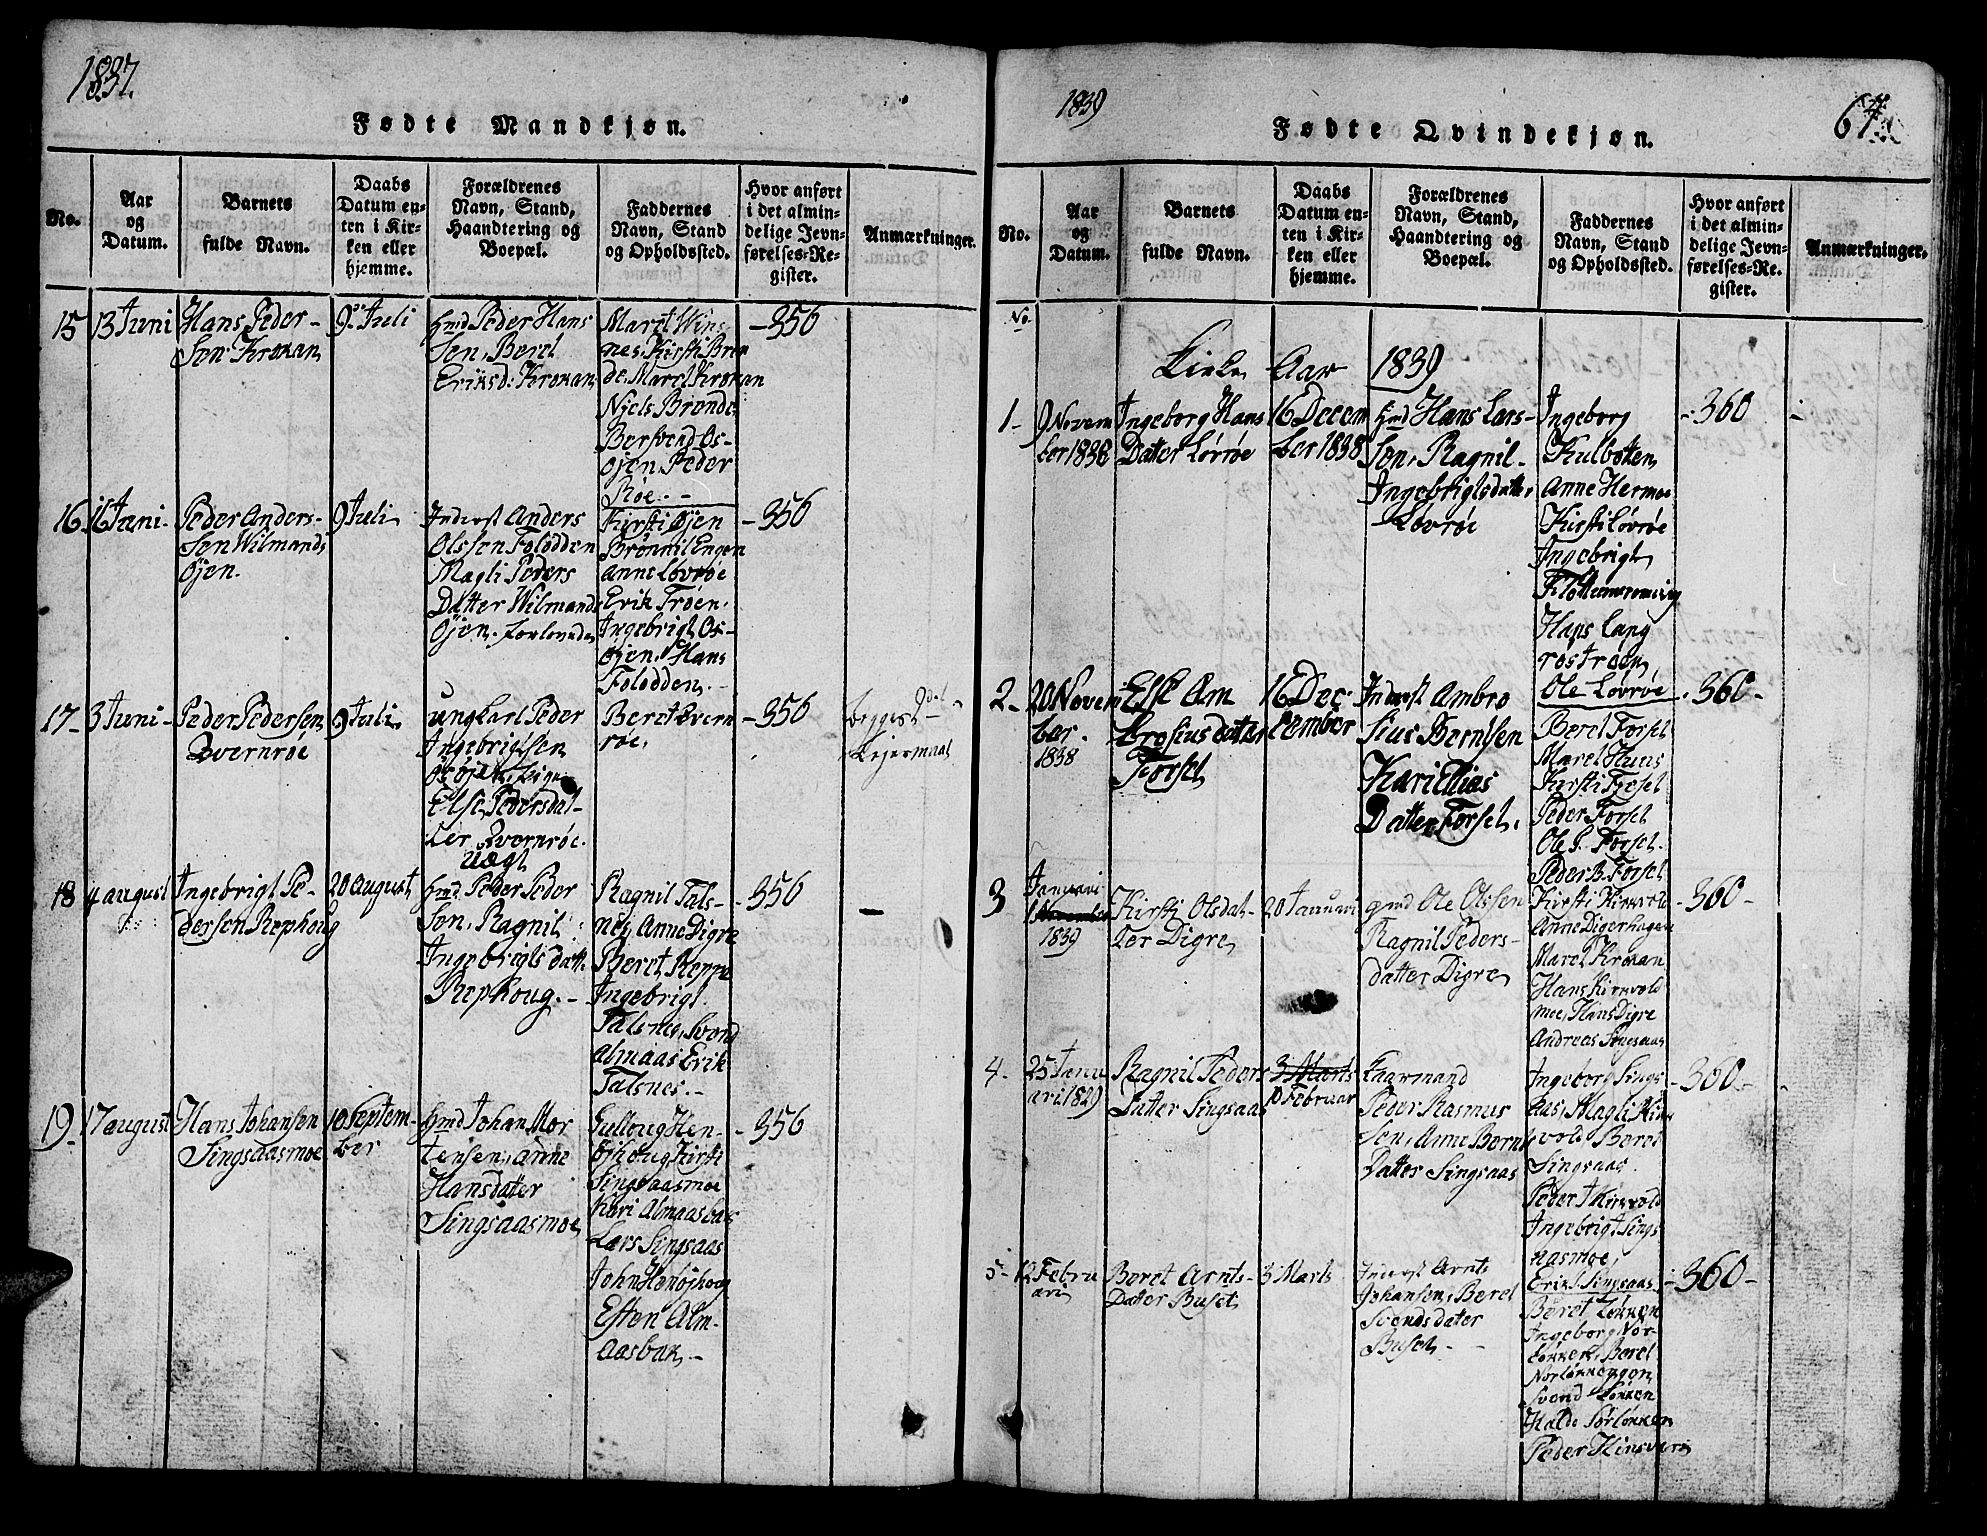 1837.
Fødte Mandkjøn.
No.
Aar
og
Datum.
Barnets
fulde Navn.
Daabs
Datum en-
ten i Kir-
ken eller
hjemme.
Forældrenes
Navn, Stand,
Haandtering og
Boepæl.
Faddernes
Navn, Stand
og Opholdssted.
Hvor anført
i det almin-
delige Jevn-
førelses-Re-
gister.
Anmærkninger.
15
13 Juni
Hans Peder-
Sen Krokan
9de Juli
Hmd Peder Hans
Sen, Beret
Eriksd: Krokan
Maret Wins
nes, Kirsti Bron
de, Maret Krokan
Niels Bronde
Bersvend Os-
øjen, Peder
Røe. -
-356
16
16 Juni-
Peder Anders-
Sen Wilmands
Øjen.
9 Juli
Inderst Anders
Olssen Folodden
Magli Peders
Datter Wilmands
Øjen.
Kirsti Øjen
Brønnil Engen
Anne Lovrøe
Erik Troen.
Ingebrigt Os-
øjen, Hans
Folodden.-
-356
17
3 Juni-
Peder Pedersen
Qvernrøe
9 Juli
ungkarl Peder
Ingebrigtsen
Osøjen, Pige
Else Pedersdat-
ter Qvernrøe.
Uægt
Beret Qvern
røe.
-356
begges
Lejermaal
18
4 august
Ingebrigt Pe-
dersen Rephoug
20 August
Hmd Peder Peder
Son, Ragnil
Ingebrigts datt.
Rephoug.-
Ragnil Tals-
nes, Anne Digre
Beret Reppe
Ingebrigt
Talsnes, Svend
Almaas Erik
Talsnes.-
-356
-
19
17 august
Hans Johansen
Singsaasmoe
10 Septem-
ber
Hmd Johan Mor
tensen, anne
Hansdatter
Singsaasmoe
Gulloug Hen-
øjhoug Kirsti
Singsaasmoe
Kari Almaasbak
Lars Singsaas
John Henøjhoug
Esten Alm-
aasbak.-
-356
1839
67
Fødte Qvindekjøn.
No.
Aar
og
Datum.
Barnets
fulde Navn.
Daabs
Datum en-
ten i Kir-
ken eller
hjemme.
Forældrenes
Navn, Stand,
Haandtering og
Boepæl.
Faddernes
Navn, Stand
og Opholdssted.
Hvor anført
i det almin-
delige Jevn-
førelses-Re-
gister.
Anmærkninger.
No.
Kirke Aar 1839
1-
9 Novem
ber 1838
Ingeborg Hans
Datter Lovrøe
16 Decem
ber 1838
Hmd Hans Lars-
Son, Ragnil-
Ingebrigtsdatter
Lovrøe
Ingeborg
Kulbotten
Anne Hermoe
Kirsti Lovrøe
Ingebrigt
Hans Lang
rostroen
Ole Lovrøe
-360
-
2-
20 Novem
ber.
1838
Else Am
brosius datter
Forset
16 Dec-
ember
Inderst Ambro
Sius Berntsen
Kari Elias
Datter Forset.
Beret Forset
Maret Huus
Kirsti Forset
Peder Forset
Ole P. Forset
Peder B. Forset
-360-
3
Januari
1 November
1839
Kirsti Olsdat-
ter Digre
20 Januari
gmd Ole Olssen
Ragnil Peders-
datter Digre
Kirsti Kirkvold
Anne Digerhagen
Maret Krokan
Hans Kirkvold
moe, Hans Digre
Andreas Singsaas
-360-
4-
25 Janu
ari 1839
Ragnil Peders
Datter Singsaas
3 Marts
10 Februar
Gaarmand
Peder Rasmus
Sen, Anne Bernts
Datter Singsaas
Ingeborg Sings
aas, Magli Kirk
vold Beret
Singsaas.
Peder J Kirkvold
Ingebrigt Sings
aasmoe,
Erik L. Singsaas
-360-
5-
12 Febru
ari
Beret Arnts-
Datter Buset
3 Marts
Inderst Arnt
Johansen, Beret
Svendsdater
Buset-
Beret Løkken
Ingeborg Nor-
løkken, Beret
Norløkkengen
Svend Løkken
Halde Sørløkken
Peder
-360-